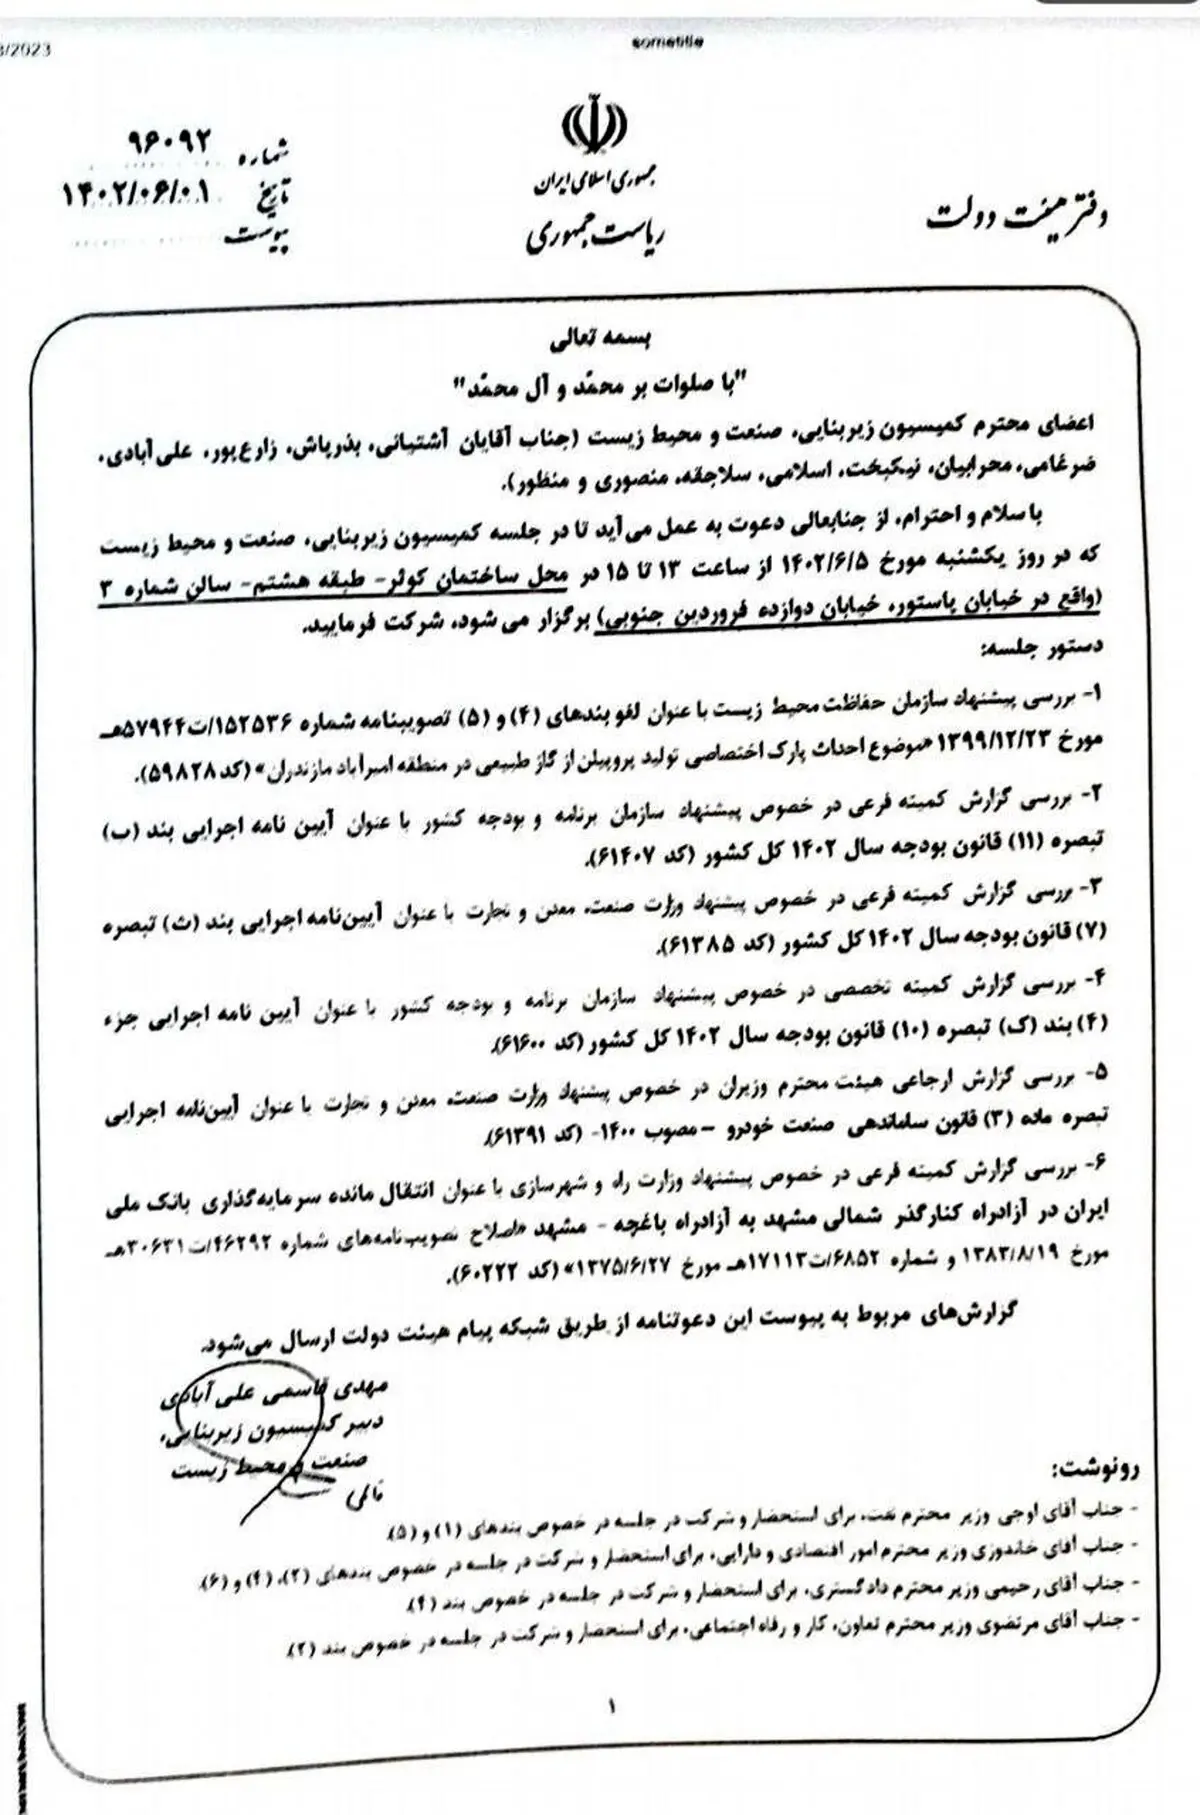 3/2023
sometitle
جمهوری اسلامی ایران
ریاست جمهوری
دفتر هیئت دولت
شماره ۹۶۰۹۲
تاریخ ۱۴۰۲/۰۶/۰۱
پیوست
بسمه تعالی
"با صلوات بر محمّد و آل محمّد"
اعضای محترم کمیسیون زیربنایی، صنعت و محیط زیست (جناب آقایان آشتیانی، بذرپاش، زارع‌پور، علی‌آبادی،
ضرغامی، محرابیان، نیکبخت، اسلامی، سلاجقه، منصوری و منظور).
با سلام و احترام، از جنابعالی دعوت به عمل می‌آید تا در جلسه کمیسیون زیربنایی، صنعت و محیط زیست
که در روز یکشنبه مورخ ۱۴۰۲/۶/۵ از ساعت ۱۳ تا ۱۵ در محل ساختمان کوثر- طبقه هشتم- سالن شماره ۳
(واقع در خیابان پاستور، خیابان دوازده فروردین جنوبی) برگزار می شود، شرکت فرمایید.
دستور جلسه:
۱- بررسی پیشنهاد سازمان حفاظت محیط زیست با عنوان لغو بندهای (۴) و (۵) تصویبنامه شماره ۱۵۲۵۳۶/ت۵۷۹۴۴هـ
مورخ ۱۳۹۹/۱۲/۲۳ «موضوع احداث پارک اختصاصی تولید پروپیلن از گاز طبیعی در منطقه امیرآباد مازندران» (کد ۵۹۸۲۸).
۲- بررسی گزارش کمیته فرعی در خصوص پیشنهاد سازمان برنامه و بودجه کشور با عنوان آیین نامه اجرایی بند (ب)
تبصره (۱۱) قانون بودجه سال ۱۴۰۲ کل کشور (کد ۶۱۴۰۷).
۳- بررسی گزارش کمیته فرعی در خصوص پیشنهاد وزارت صنعت، معدن و تجارت با عنوان آیین‌نامه اجرایی بند (ث) تبصره
(۷) قانون بودجه سال ۱۴۰۲ کل کشور (کد ۶۱۳۸۵).
۴- بررسی گزارش کمیته تخصصی در خصوص پیشنهاد سازمان برنامه و بودجه کشور با عنوان آیین نامه اجرایی جزء
(۴) بند (ک) تبصره (۱۰) قانون بودجه سال ۱۴۰۲ کل کشور (کد ۶۱۶۰۰).
۵- بررسی گزارش ارجاعی هیئت محترم وزیران در خصوص پیشنهاد وزارت صنعت، معدن و تجارت با عنوان آیین‌نامه اجرایی
تبصره ماده (۳) قانون ساماندهی صنعت خودرو –مصوب ۱۴۰۰- (کد ۶۱۳۹۱).
۶- بررسی گزارش کمیته فرعی در خصوص پیشنهاد وزارت راه و شهرسازی با عنوان انتقال مانده سرمایه‌گذاری بانک ملی
ایران در آزادراه کنارگذر شمالی مشهد به آزادراه باغچه - مشهد «اصلاح تصویب‌نامه‌های شماره ۴۶۲۹۲/ت۳۰۶۳۱هـ
مورخ ۱۳۸۳/۸/۱۹ و شماره ۶۸۵۲/ت۱۷۱۱۳هـ مورخ ۱۳۷۵/۶/۲۷» (کد ۶۰۲۲۲).
گزارش‌های مربوط به پیوست این دعوتنامه از طریق شبکه پیام هیئت دولت ارسال می‌شود.
مهدی قاسمی علی آبادی
دبیر کمیسیون زیربنایی،
صنعت و محیط زیست
رونوشت:
- جناب آقای اوجی وزیر محترم نفت، برای استحضار و شرکت در جلسه در خصوص بندهای (۱) و (۵).
- جناب آقای خاندوزی وزیر محترم امور اقتصادی و دارایی، برای استحضار و شرکت در جلسه در خصوص بندهای (۲)، (۴) و (۶).
- جناب آقای رحیمی وزیر محترم دادگستری، برای استحضار و شرکت در جلسه در خصوص بند (۴).
- جناب آقای مرتضوی وزیر محترم تعاون، کار و رفاه اجتماعی، برای استحضار و شرکت در جلسه در خصوص بند (۲).
۱